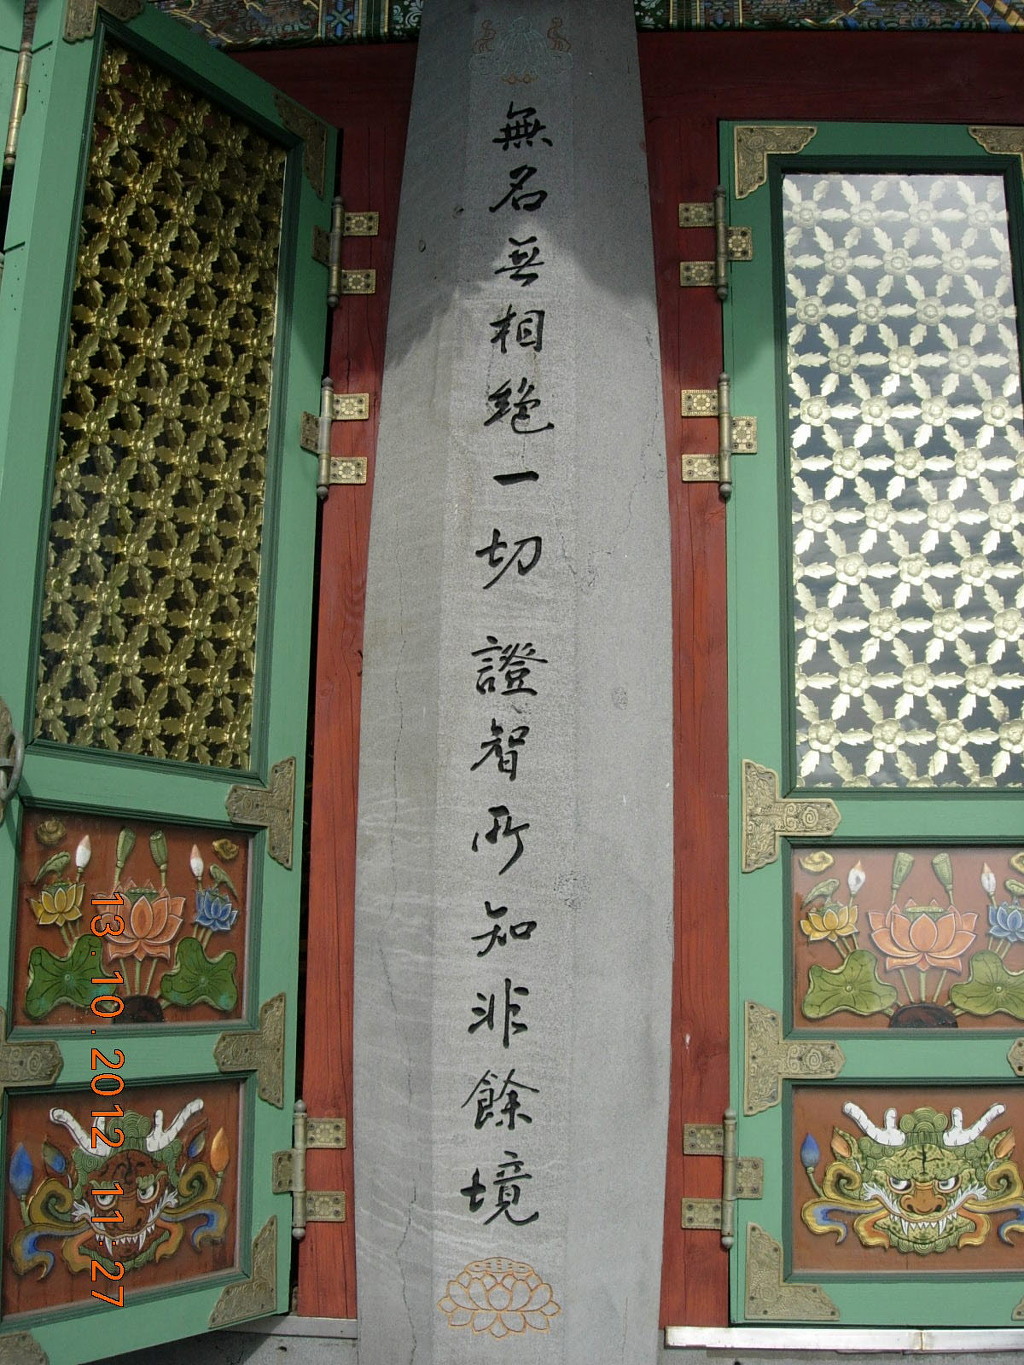 無名無相絶一切 證智所知非餘境
13.10.2012 11:27